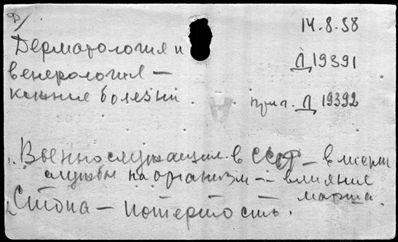 Д/
14.8.58
Дерматология и
Д19391
венерология —
кожные болезни.
прил. Д 19392
1. Военнослужащие в СССР — влияние
службы на организм — влияние
марша.
2. Стопа — потертость.